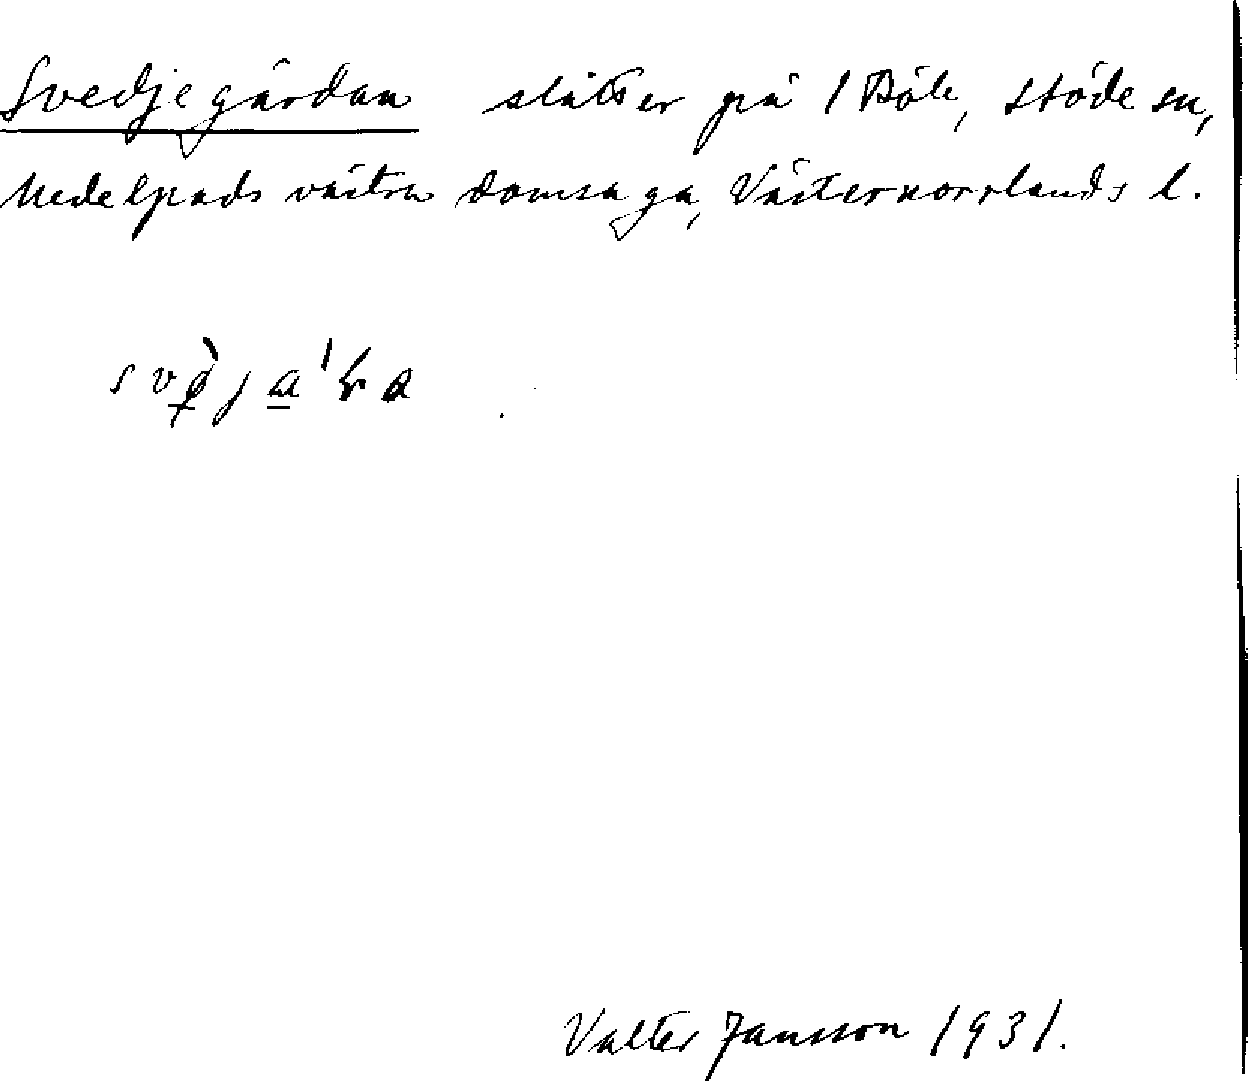 Svedjegärdan slåtter på 1 Böle, Stöde sn,
Medelpads västra domsaga, Västernorrlands l.
Valter Jansson 1931.